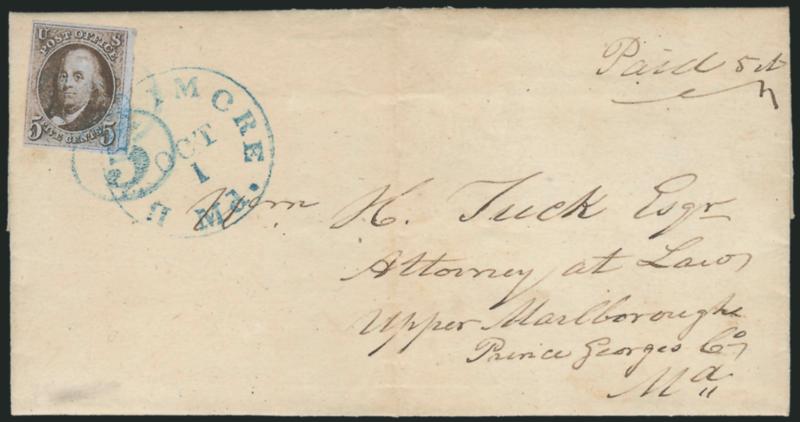 U S
POST OFFICE
FIVE CENTS
5 5
5
IMORE. Md.
OCT
1
Paid 5 cts
Wm H. Tuck Esqr
Attorney at Law
Upper Marlborough
Prince Georges Co
Md